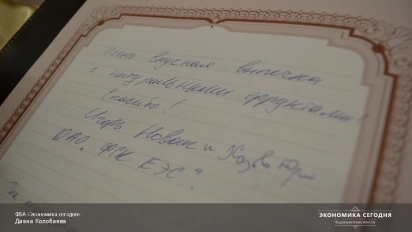 вкусная выпечка
с натуральными фруктами!
Спасибо!
Игорь Новак и
ОАО "ФСК ЕЭС".
ФБА «Экономика сегодня»
Диана Колобаева
ЭКОНОМИКА СЕГОДНЯ